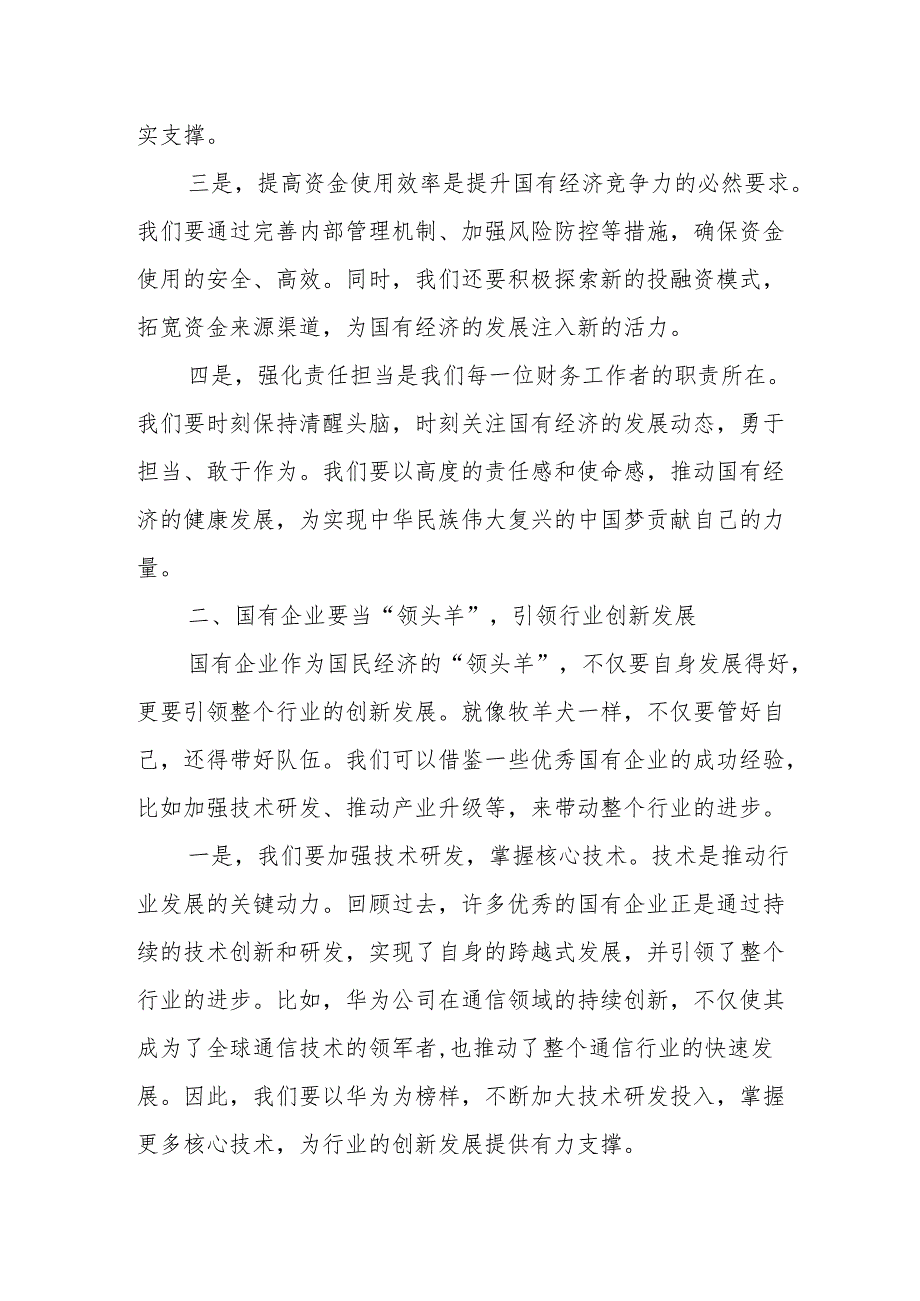 实支撑。
三是，提高资金使用效率是提升国有经济竞争力的必然要求。
我们要通过完善内部管理机制、加强风险防控等措施，确保资金
使用的安全、高效。同时，我们还要积极探索新的投融资模式，
拓宽资金来源渠道，为国有经济的发展注入新的活力。
四是，强化责任担当是我们每一位财务工作者的职责所在。
我们要时刻保持清醒头脑，时刻关注国有经济的发展动态，勇于
担当、敢于作为。我们要以高度的责任感和使命感，推动国有经
济的健康发展，为实现中华民族伟大复兴的中国梦贡献自己的力
量。
二、国有企业要当“领头羊”，引领行业创新发展
国有企业作为国民经济的“领头羊”，不仅要自身发展得好，
更要引领整个行业的创新发展。就像牧羊犬一样，不仅要管好自
己，还得带好队伍。我们可以借鉴一些优秀国有企业的成功经验，
比如加强技术研发、推动产业升级等，来带动整个行业的进步。
一是，我们要加强技术研发，掌握核心技术。技术是推动行
业发展的关键动力。回顾过去，许多优秀的国有企业正是通过持
续的技术创新和研发，实现了自身的跨越式发展，并引领了整个
行业的进步。比如，华为公司在通信领域的持续创新，不仅使其
成为了全球通信技术的领军者,也推动了整个通信行业的快速发
展。因此，我们要以华为为榜样，不断加大技术研发投入，掌握
更多核心技术，为行业的创新发展提供有力支撑。